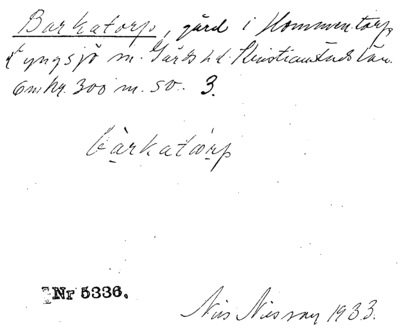 Barkatorp, gård i Kommentorp,
Lyngsjö sn. Gärds hd. Kristianstads län.
Omkr. 300 m. so. 3.
bàrkatòrp
Nr 5336.
Nils Nilsson 1933.